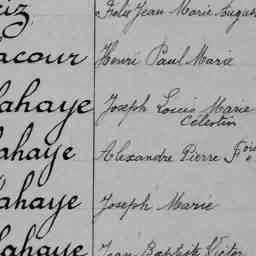 iz Félix Jean Marie Augus
acour Henri Paul Marie
ahaye Joseph Louis Marie
Célestin
ahaye Alexandre Pierre Fois
ahaye Joseph Marie
ahaye Jean Baptiste Victor